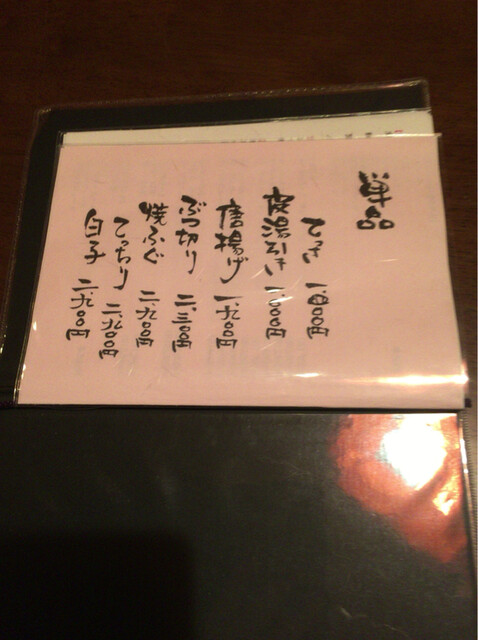 単品
てっさ 一、八〇〇円
皮湯引き 一、〇〇〇円
唐揚げ 一、九〇〇円
ぶつ切り 二、三〇〇円
焼ふぐ 二、九〇〇円
てっちり 二、九〇〇円
白子 二、九〇〇円